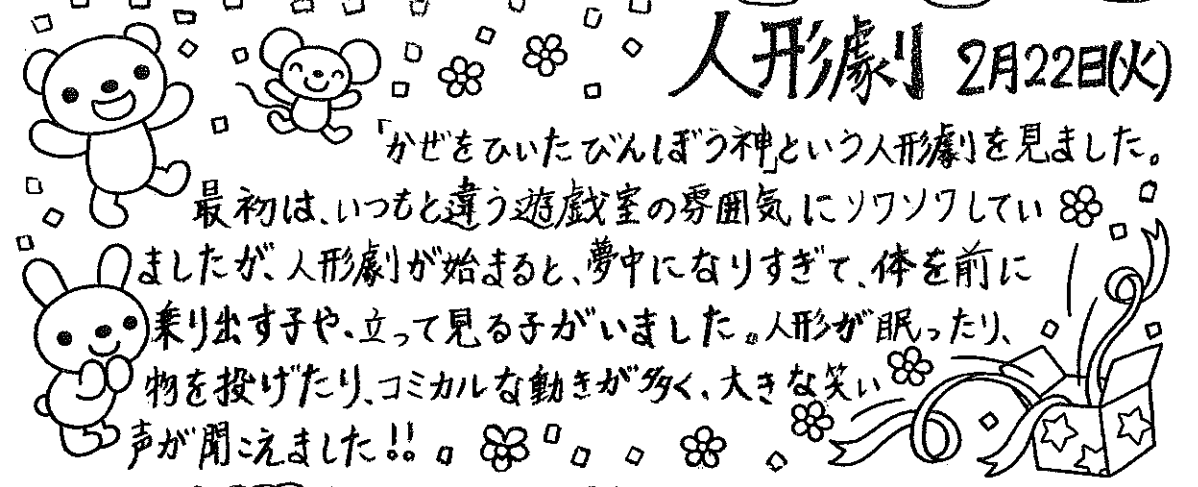 人形劇 2月22日(火)
「かぜをひいたびんぼう神」という人形劇を見ました。
最初は、いつもと違う遊戯室の雰囲気にソワソワしてい
ましたが、人形劇が始まると、夢中になりすぎて、体を前に
乗り出す子や、立って見る子がいました。人形が眠ったり、
物を投げたり、コミカルな動きが多く、大きな笑い
声が聞こえました!!